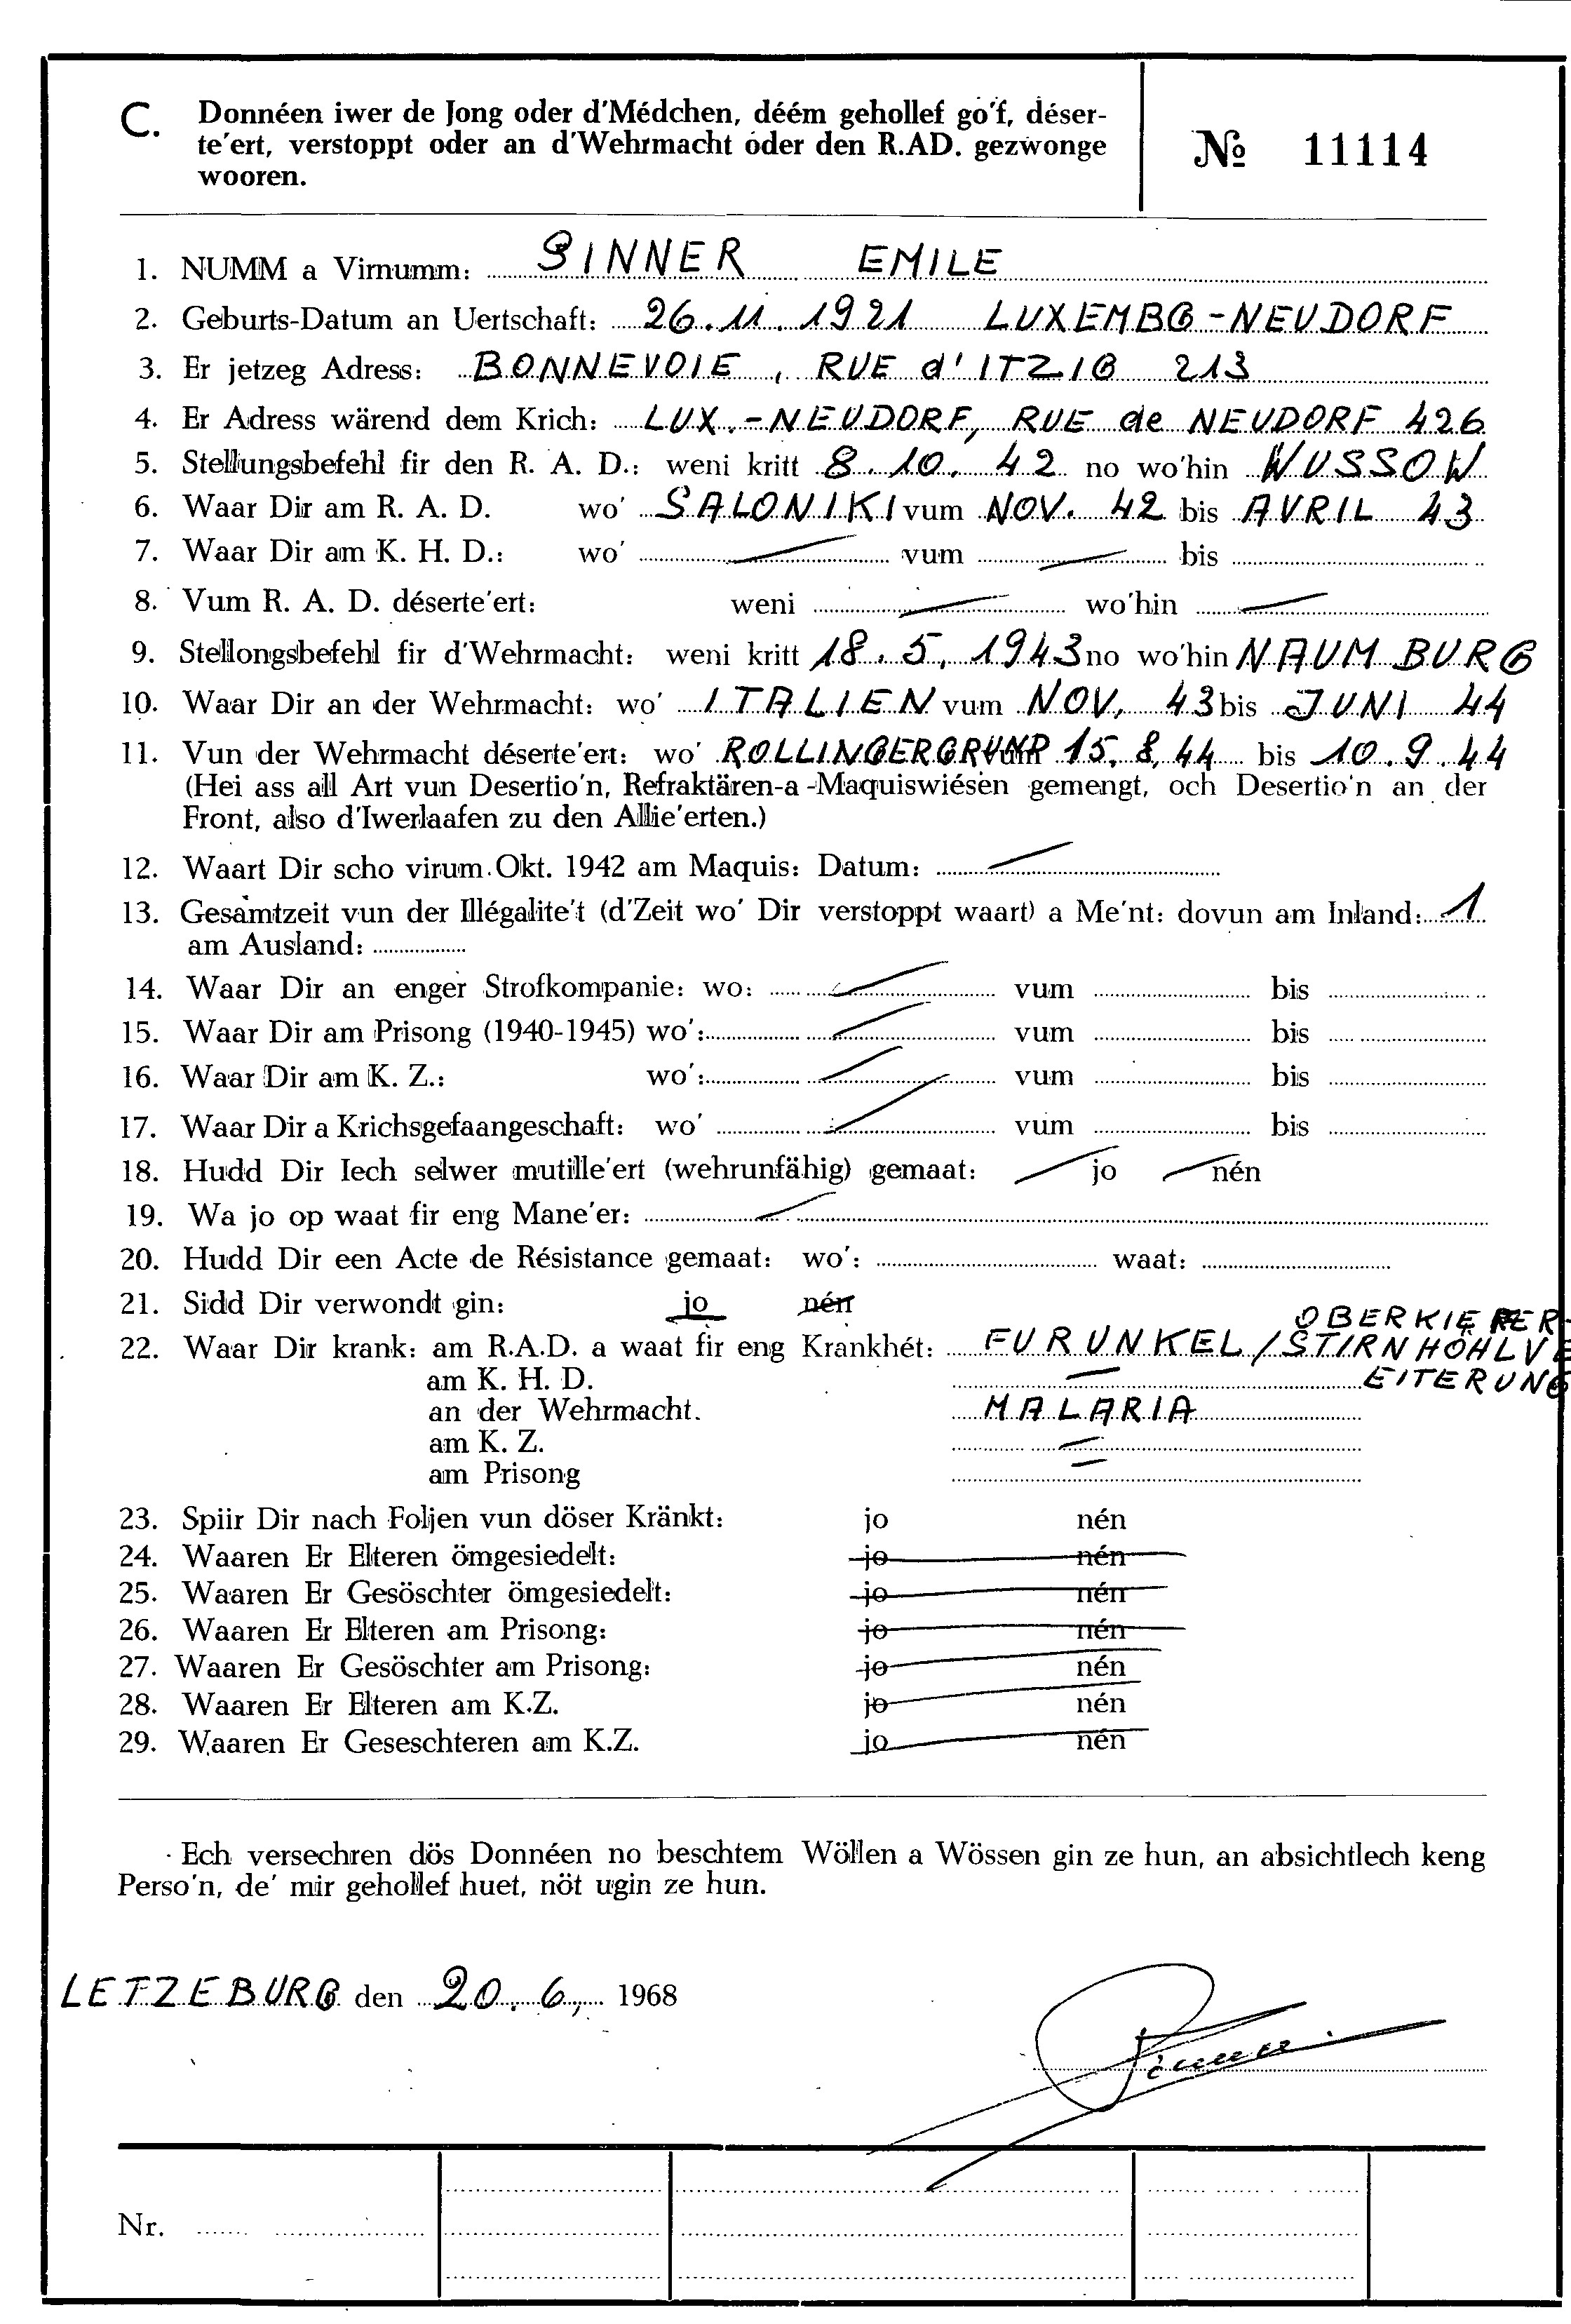 C. Donnéen iwer de Jong oder d'Médchen, déém gehollef go'f, déser-
te'ert, verstoppt oder an d'Wehrmacht oder den R.AD. gezwonge
wooren.
№ 11114
1. NUMM a Virnumm: SINNER EMILE
2. Geburts-Datum an Uertschaft: 26.11.1921 LUXEMBG-NEUDORF
3. Er jetzeg Adress: BONNEVOIE, RUE d'ITZIG 213
4. Er Adress wärend dem Krich: LUX.-NEUDORF, RUE de NEUDORF 426
5. Stellungsbefehl fir den R. A. D.: weni kritt 8.10.42 no wo'hin WUSSOW
6. Waar Dir am R. A. D. wo' SALONIKI vum NOV. 42 bis AVRIL 43
7. Waar Dir am K. H. D.: wo' vum bis
8. Vum R. A. D. déserte'ert: weni wo'hin
9. Stellongsbefehl fir d'Wehrmacht: weni kritt 18.5.1943 no wo'hin NAUMBURG
10. Waar Dir an der Wehrmacht: wo' ITALIEN vum NOV. 43 bis JUNI 44
11. Vun der Wehrmacht déserte'ert: wo' ROLLINGERGRUND vum 15.8.44 bis 10.9.44
(Hei ass all Art vun Desertio'n, Refraktären-a-Maquiswiésen gemengt, och Desertio'n an der
Front, also d'Iwerlaafen zu den Allie'erten.)
12. Waart Dir scho virum Okt. 1942 am Maquis: Datum:
13. Gesamtzeit vun der Illégalite't (d'Zeit wo' Dir verstoppt waart) a Me'nt: dovun am Inland: 1
am Ausland:
14. Waar Dir an enger Strofkompanie: wo: vum bis
15. Waar Dir am Prisong (1940-1945) wo': vum bis
16. Waar Dir am K. Z.: wo': vum bis
17. Waar Dir a Krichsgefaangeschaft: wo' vum bis
18. Hudd Dir Iech selwer mutille'ert (wehrunfähig) gemaat: jo nén
19. Wa jo op waat fir eng Mane'er:
20. Hudd Dir een Acte de Résistance gemaat: wo': waat:
21. Sidd Dir verwondt gin: jo nén
OBERKIEFER-
22. Waar Dir krank: am R.A.D. a waat fir eng Krankhét: FURUNKEL/STIRNHÖHLVE
am K. H. D. EITERUNG
an der Wehrmacht. MALARIA
am K. Z.
am Prisong
23. Spiir Dir nach Foljen vun döser Kränkt: jo nén
24. Waaren Er Elteren ömgesiedelt: jo nén
25. Waaren Er Gesöschter ömgesiedelt: jo nén
26. Waaren Er Elteren am Prisong: jo nén
27. Waaren Er Gesöschter am Prisong: jo nén
28. Waaren Er Elteren am K.Z. jo nén
29. Waaren Er Geseschteren am K.Z. jo nén
Ech versechren dös Donnéen no beschtem Wöllen a Wössen gin ze hun, an absichtlech keng
Perso'n, de' mir gehollef huet, nöt ugin ze hun.
LETZEBURG den 20.6, 1968
Sinner
Nr.